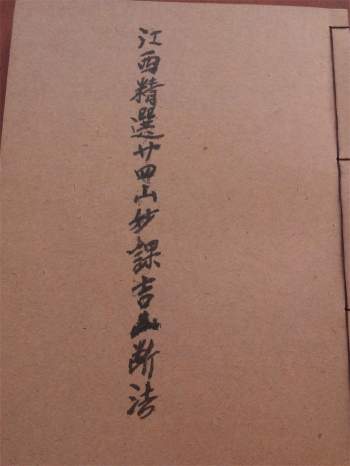 江西精選廿四山妙課吉凶断法